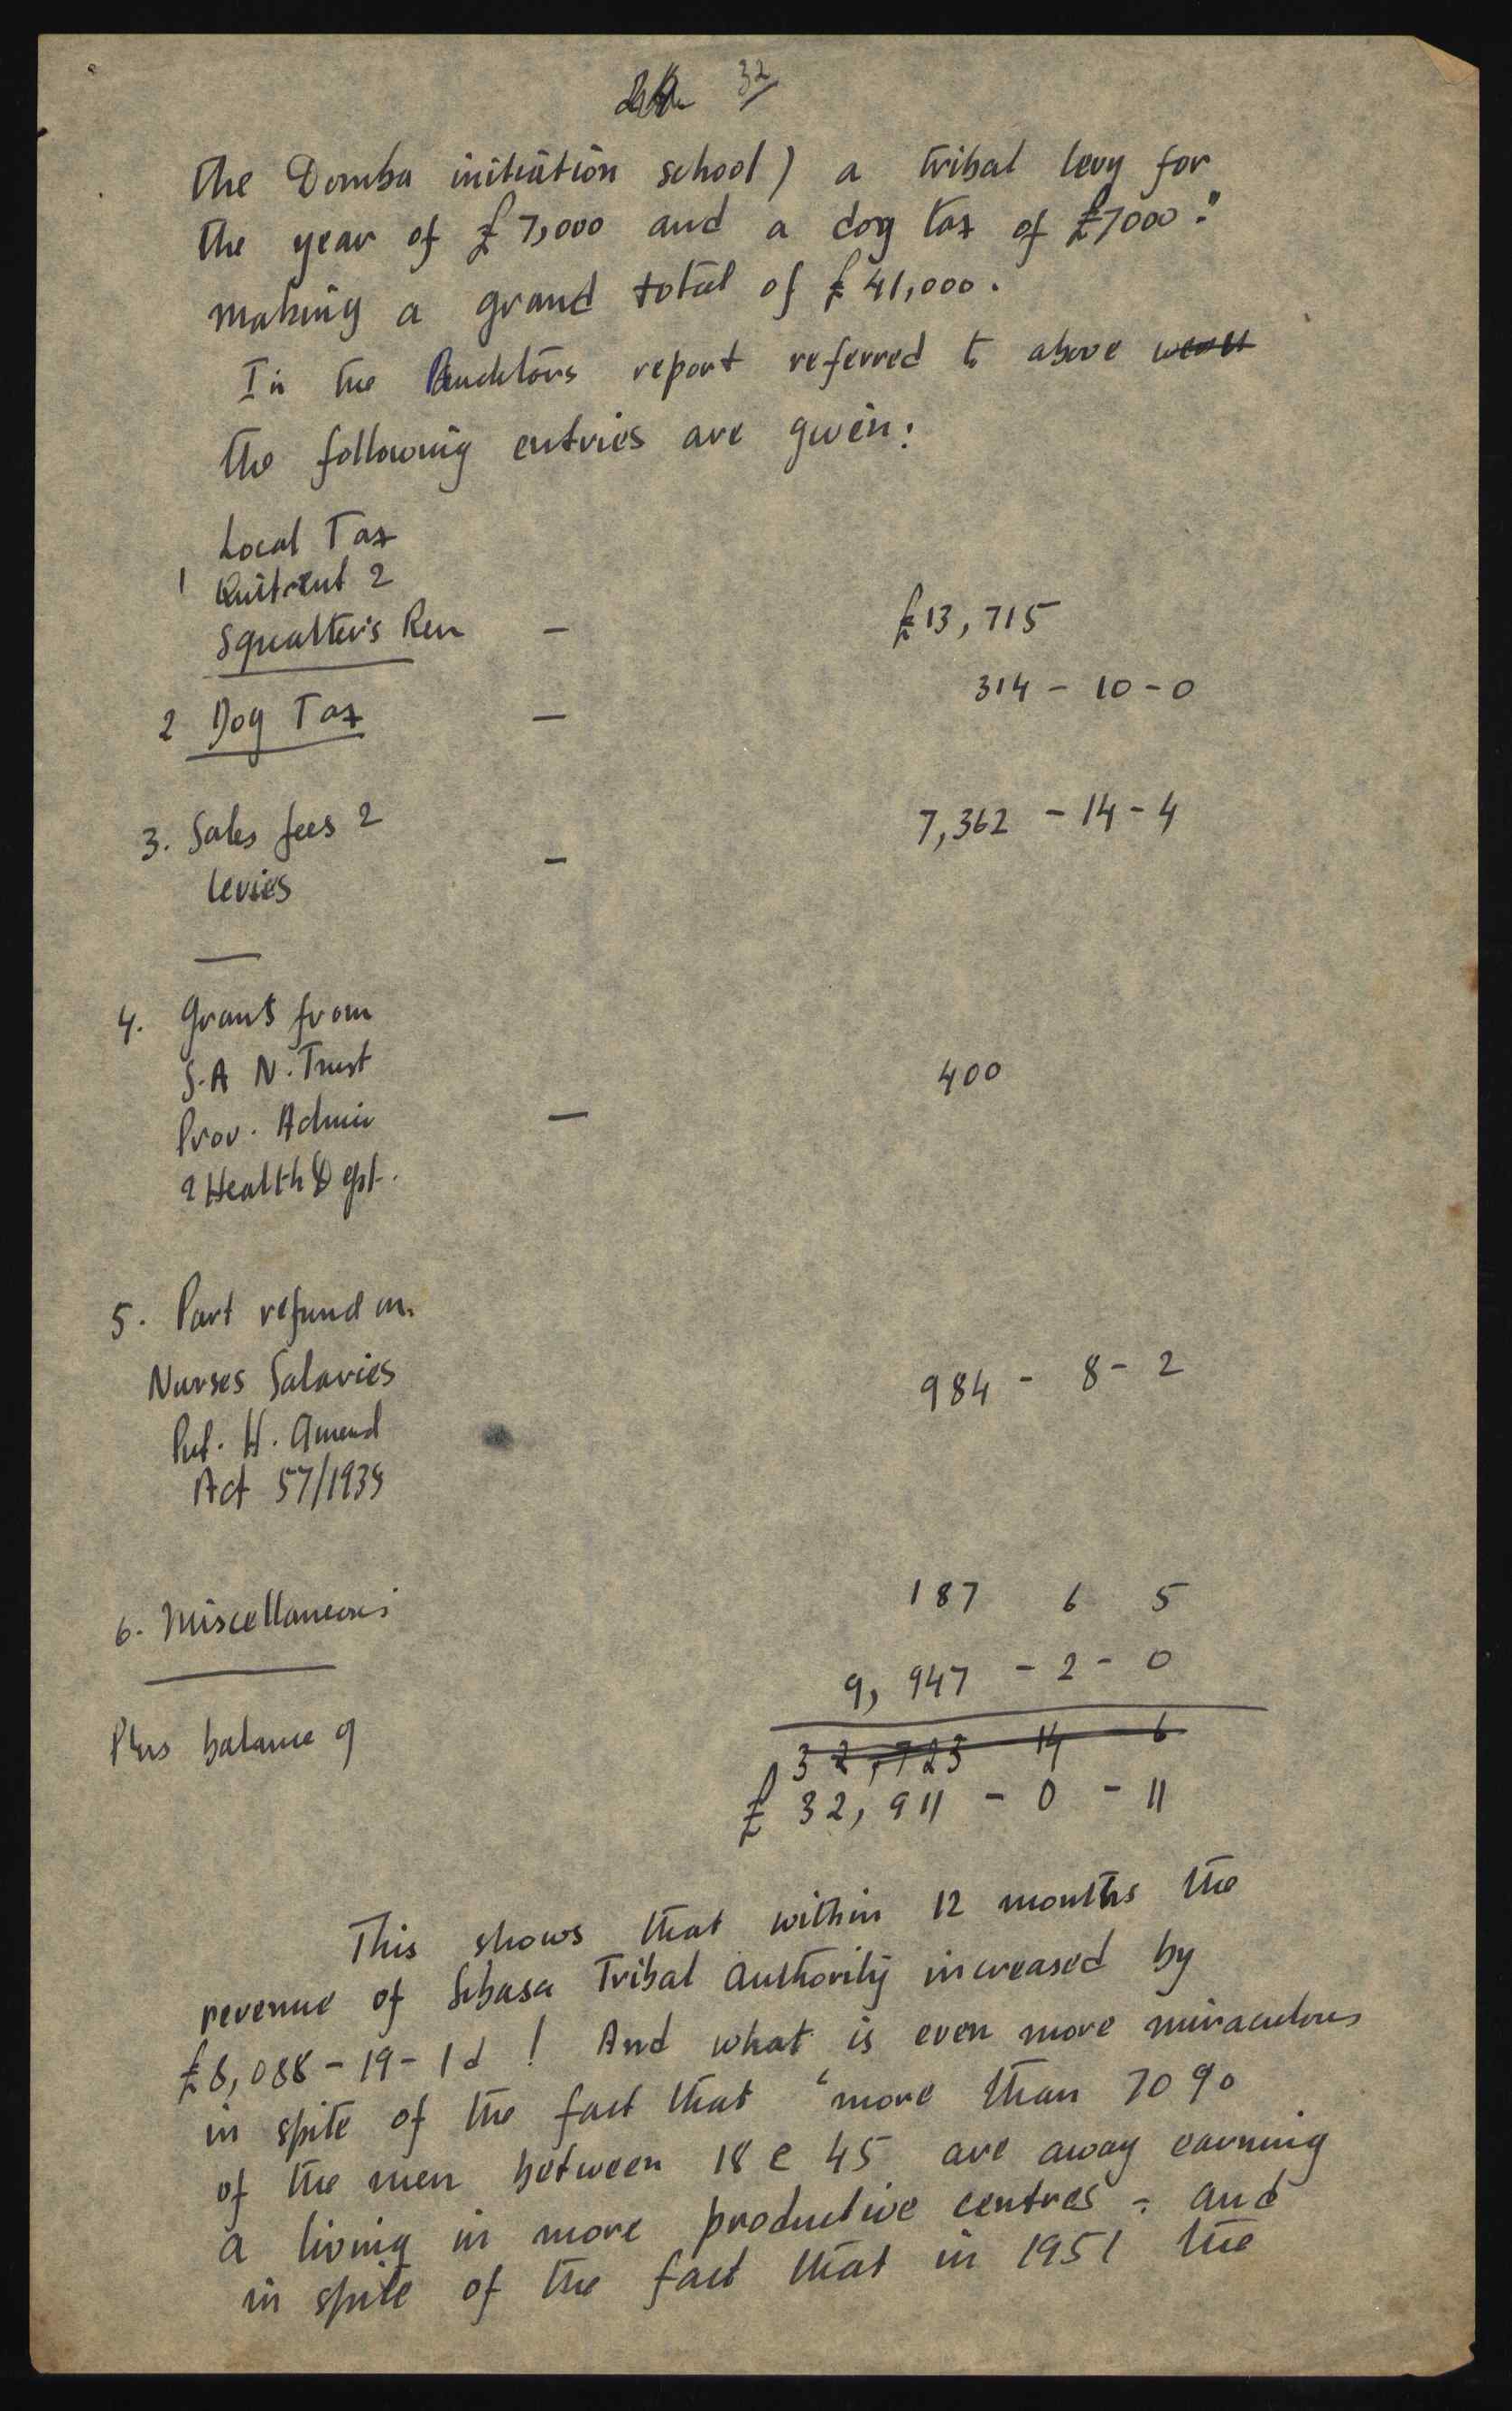 32
the Domba initiation school) a tribal levy for
the year of £7,000 and a dog tax of £7000."
making a grand total of £41,000.
In the Auditors report referred to above
the following entries are given:
Local Tax
1 Quitrent 2
Squatter's Ren — £13,715
2 Dog Tax — 314 - 10 - 0
3. Sales fees 2 7,362 - 14 - 4
levies —
4. Grants from
S.A N. Trust 400
Prov. Admin —
2 Health Dept.
5. Part refund on.
Nurses Salaries 984 - 8 - 2
Pub. H. Amend
Act 57/1935
6. Miscellaneous 187 6 5
9,947 - 2 - 0
Plus balance of
32,723 14 6
£ 32,911 - 0 - 11
This shows that within 12 months the
revenue of Sibasa Tribal Authority increased by
£8,088 - 19 - 1d ! And what is even more miraculous
in spite of the fact that "more than 70%
of the men between 18 & 45 are away earning
a living in more productive centres - and
in spite of the fact that in 1951 the